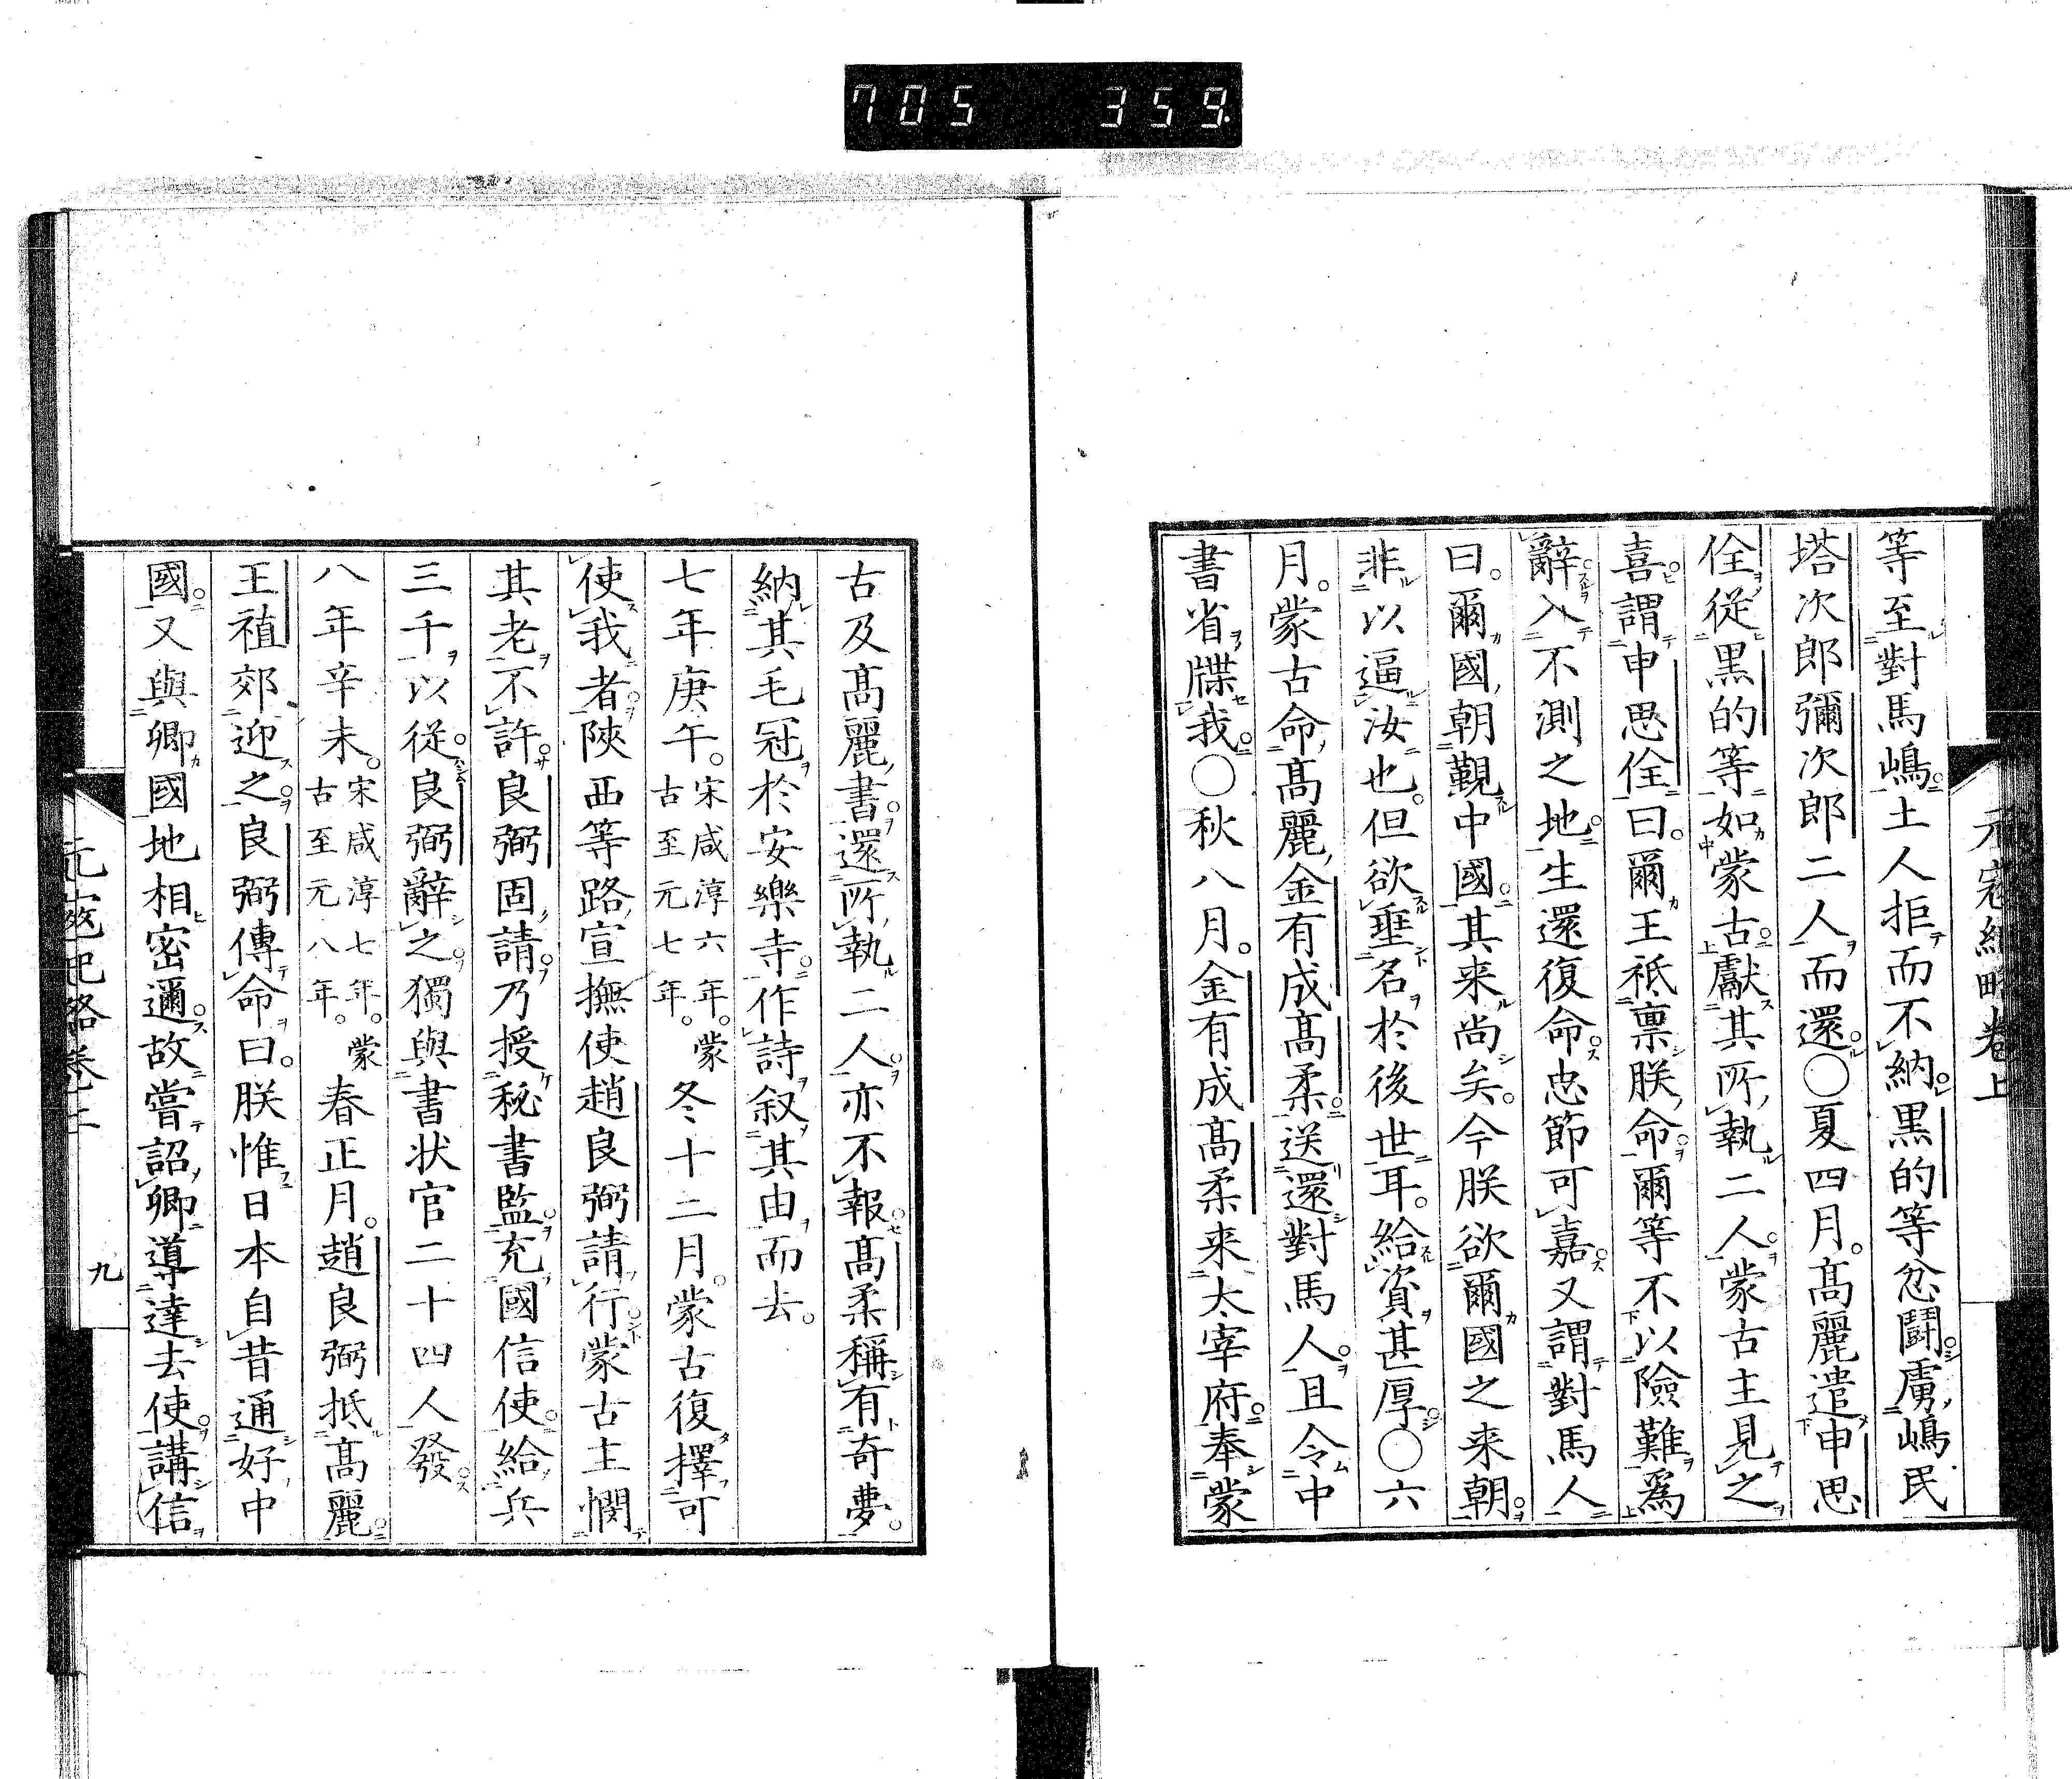 705 359
元寇紀略卷上
等至對馬嶋土人拒而不納黒的等忿鬪虜嶋民
塔次郎彌次郎二人而還○夏四月高麗遣申思
佺從黒的等如蒙古獻其所執二人蒙古主見之
喜謂申思佺曰爾王祗稟朕命爾等不以險難爲
辭入不測之地生還復命忠節可嘉又謂對馬人
曰爾國朝覲中國其来尚矣今朕欲爾國之来朝
非以逼汝也但欲垂名於後世耳給賚甚厚○六
月蒙古命高麗金有成高柔送還對馬人且令中
書省牒我○秋八月金有成高柔来太宰府奉蒙
古及高麗書還所執二人亦不報高柔稱有奇夢
納其毛冠於安樂寺作詩叙其由而去
七年庚午宋咸淳六年蒙古至元七年冬十二月蒙古復擇可
使我者陝西等路宣撫使趙良弼請行蒙古主憫
其老不許良弼固請乃授秘書監充國信使給兵
三千以從良弼辭之獨與書状官二十四人發
八年辛未宋咸淳七年蒙古至元八年春正月趙良弼抵高麗
王禃郊迎之良弼傳命曰朕惟日本自昔通好中
國又與卿國地相密邇故嘗詔卿導達去使講信
元寇紀略卷上
九